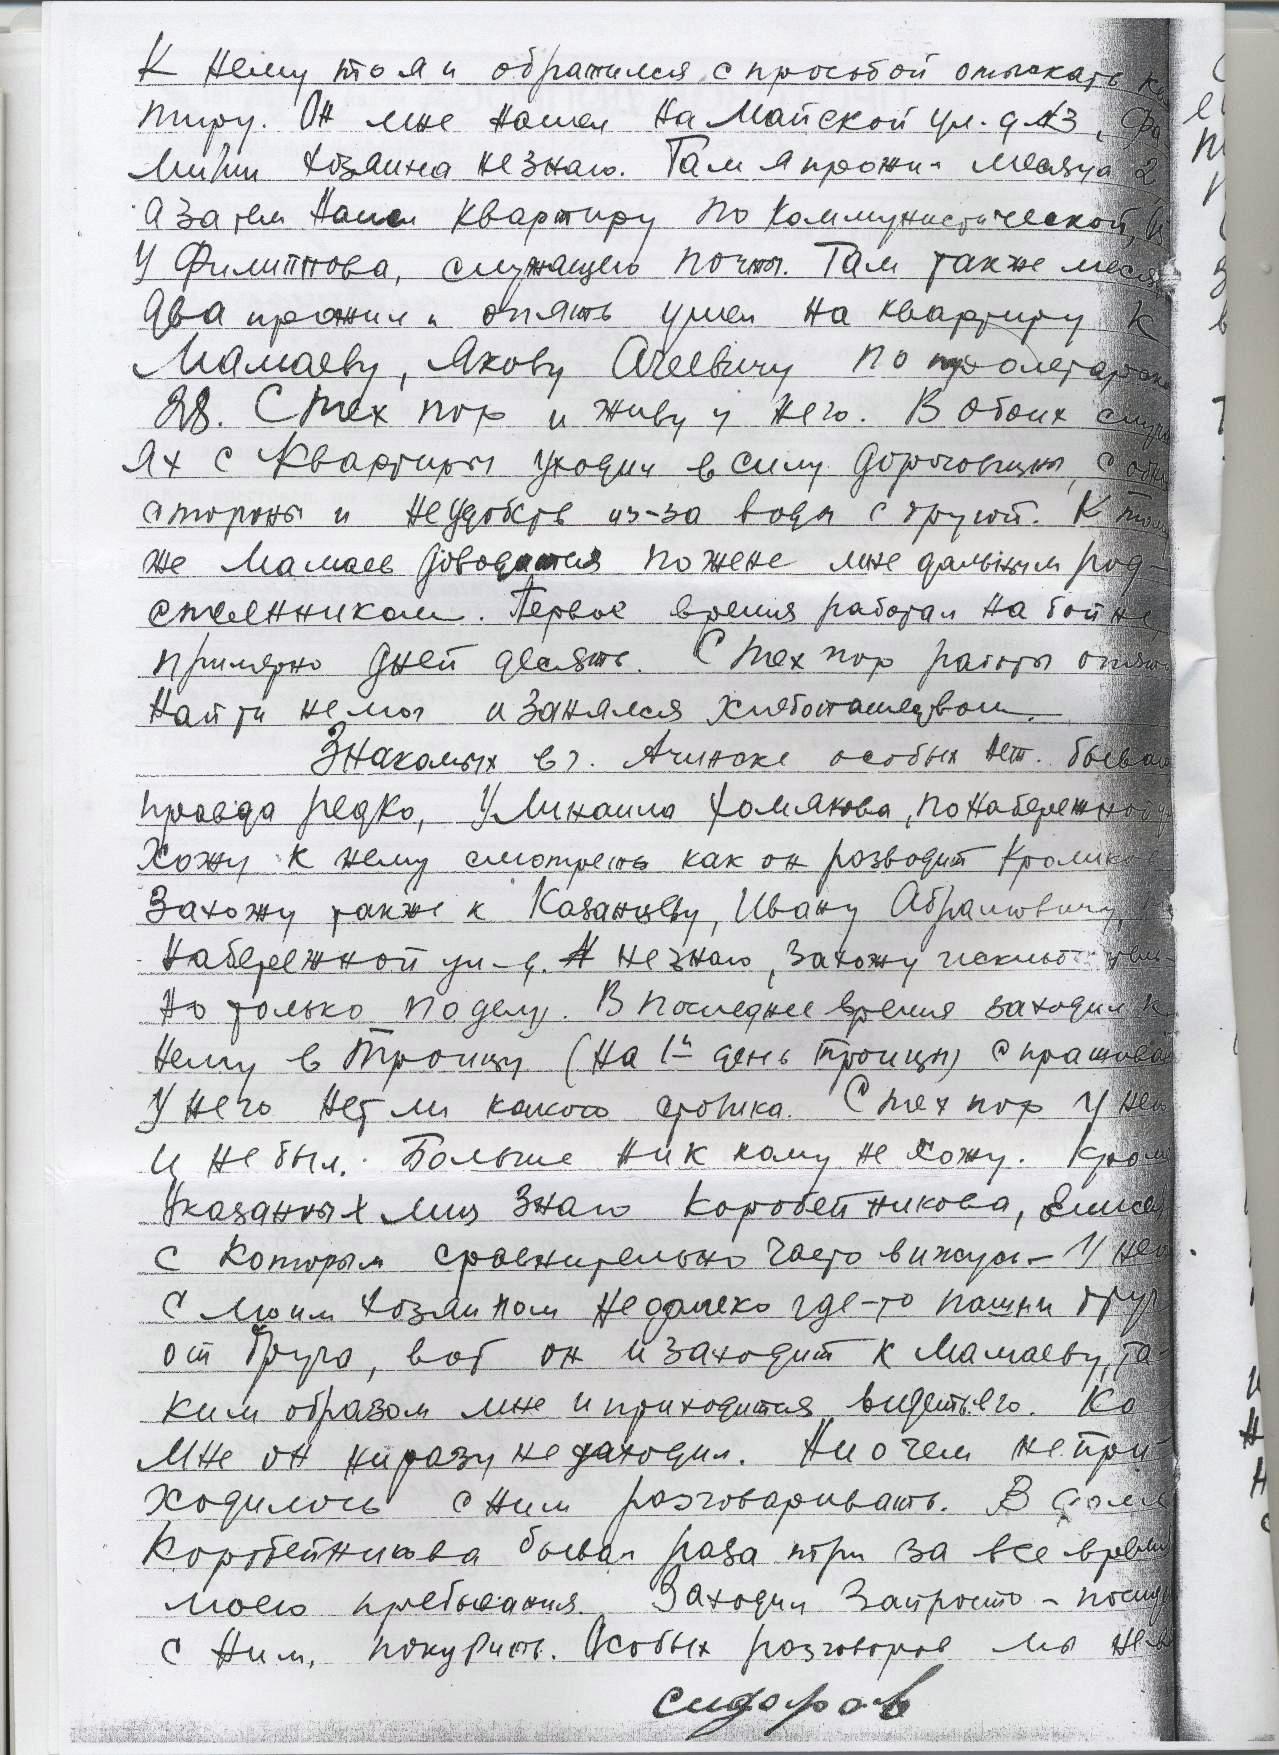 К нему то я и обратился с просьбой отыскать ква
тиру. Он мне нашел на Майской ул. д №3, Фа
милии хозяина не знаю. Там я прожил месяца 2,
а затем нашел квартиру по Коммунистической,
У Филиппова, служащего почты. Там также меся
два прожил и опять ушел на квартиру к
Мамаеву, Якову Агеевичу по пролетарской
28. С тех пор и живу у него. В обоих случа
ях с квартиры уходил в силу дороговизны, с одн
стороны и неудобств из-за воды с другой. К тому
же Мамаев доводится по жене мне дальним род-
ственником. Первое время работал на бойне,
примерно дней десять. С тех пор работы опять
найти не мог и занялся хлебопашеством.
Знакомых в г. Ачинске особых нет. бываю
правда редко, У Михаила Хомякова, по Набережной у
Хожу к нему смотреть как он разводит кроликов
Захожу также к Казанцеву, Ивану Абрамовичу,
Набережной ул-д. № не знаю, захожу исключитель-
но только по делу. В последнее время заходил к
нему в Троицу (на 1й день Троицы) спрашивал
у него нет ли какого стожка. С тех пор у него
и не был. Больше ни к кому не хожу. Кроме
Указанных лиц знаю Коробейникова, Елисея
с которым сравнительно часто вижусь - У него
с моим хозяином недалеко где-то пашни друг
от друга, вот он и заходит к Мамаеву, та-
ким образом мне и приходится видеть его. Ко
мне он ни разу не заходил. Ни о чем не при-
ходилось с ним разговаривать. В доме
Коробейникова бывал раза три за все время
моего пребывания. Заходил запросто - посиде
с ним, покурить. Особых разговоров мы не в
Сидоров